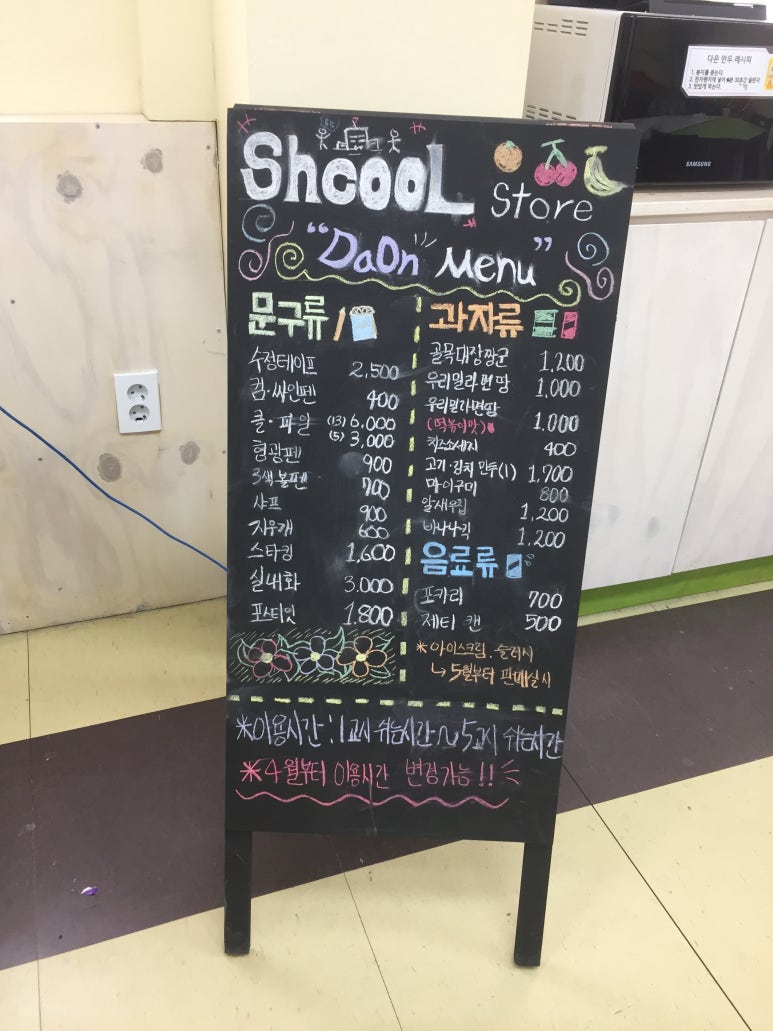 Shcool
Store
"DaOn" Menu"
문구류
수정테이프 2,500
컴·싸인펜 400
클·파일 (13) 6,000
(5) 3,000
형광펜 900
3색볼펜 700
샤프 900
지우개 600
스타킹 1,600
실내화 3.000
포스티잇 1.800
과자류
골목대장짱군 1,200
우리밀라면땅 1,000
우리밀라면땅
(떡볶이맛) 1.000
치즈소세지 400
고기·김치 만두(1) 1,700
마이구미 800
알새우칩 1,200
바나나킥 1.200
음료류
포카리 700
제티 캔 500
*아이스크림.슬러시
↳ 5월부터 판매실시
*이용시간 : 1교시 쉬는시간 ~ 5교시 쉬는시간
*4월부터 이용시간 변경가능!!
다온 만두 레시피
1. 봉지를 뜯는다.
3. 맛있게 먹는다.
SAMSUNG